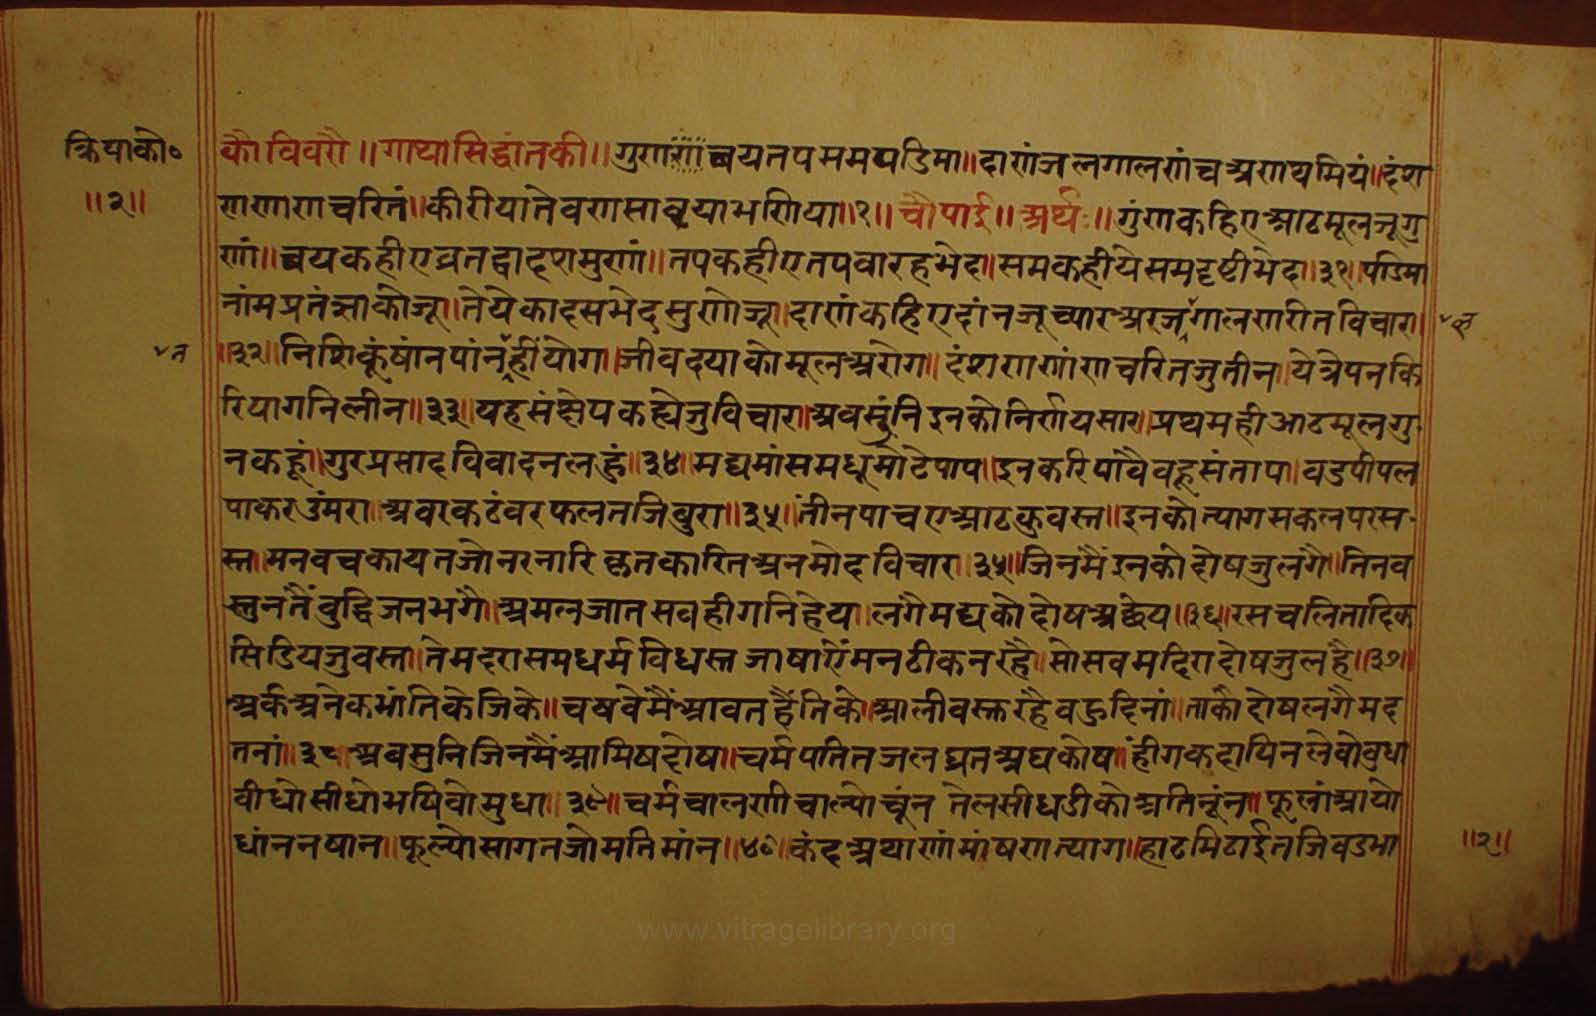 क्रियाको०
॥२॥
कौ विवरौ ॥ गाथासिद्धांतकी ॥ गुण वयतपसमपडिमा ॥ दाणंजलगालणंचअणथमियं ॥ दंश
णणाणचरितं ॥ कीरीयातेवणसावयाभणिया ॥१॥ चौपाई ॥ अर्थः ॥ गुंणकहिएआठमूलजूगु
णं ॥ वयकहीएव्रतद्वादशमुणं ॥ तपकहीएतपवारहभेद ॥ समकहीयेसमदृष्टीभेद ॥३१॥ पडिमा
नांमप्रतंज्ञाकोजू ॥ तेयेकादसभेदसुणोजू ॥ दाणंकहिएदांनजूच्यार ॥ अरजलगालणरीतविचार ॥
॥३२॥ निशिकूंषांनपांननहींयोग ॥ जीवदयाकोमूलअरोग ॥ दंशणणांणचरितजुतीन ॥ येत्रेपनकि
रियागनिलीन ॥३३॥ यहसंक्षेपकह्योजुविचार ॥ अवसुंनिइनकोनिर्णयसार ॥ प्रथमहीआठमूलगु
नकहूं ॥ गुरप्रसादविवादनलहुं ॥३४॥ मद्यमांसमधूमोटेपाप ॥ इनकरिपावैवहूसंताप ॥ वडपीपल
पाकरउंमरा ॥ अवरकठंवरफलतजिवुरा ॥३५॥ तीनपाचएआठकुवस्त ॥ इनकोत्यागसकलपरस
स्त ॥ मनवचकायतजोनरनारि कृतकारितअनमोदविचार ॥३५॥ जिनमैंइनकोदोषजुलगै ॥ तिनव
स्तुनतैंवुद्धिजनभगै ॥ अमलजातसवहीगनिहेय ॥ लगैमद्यकोदोषअछेय ॥३६॥ रसचलितादिक
सिडियजुवस्त ॥ तेमदरासमधर्मविधस्त जाषाएंमनठीकनरहै ॥ सोसवमदिरादोषजुलहै ॥३७॥
अर्कअनेकभांतिकेजिके ॥ चषवेमैंआवतहैंतिके ॥ आलीवस्तरहैवहुदिनां ॥ ताकोदोषलगैमद
तनां ॥३८ अबसुनिजिनमैंआमिषदोष ॥ चर्मपतितजलघ्रतअघकोष ॥ हींगकदापिनलेवोवुधा
वीधोसीधोभषिवोमुधा ॥३९॥ चर्मचालणीचाल्योचूंन तेलसीधडीकोअतिनूंन ॥ फूलांआयो
धांननषान ॥ फूल्योसागतजोमतिमांन ॥४०॥ कंदअथाणंमांषणत्याग ॥ हाटमिठाईतजिवडभा
॥२॥